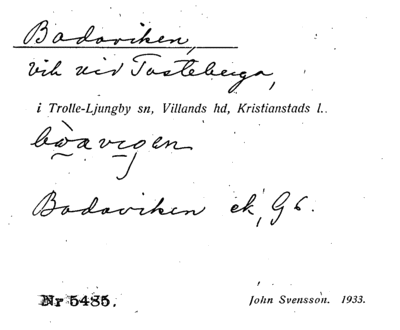 Badaviken,
vik vid Tosteberga,
i Trolle-Ljungby sn, Villands hd, Kristianstads l.
Badaviken ek, G6.
Nr 5485.
John Svensson. 1933.